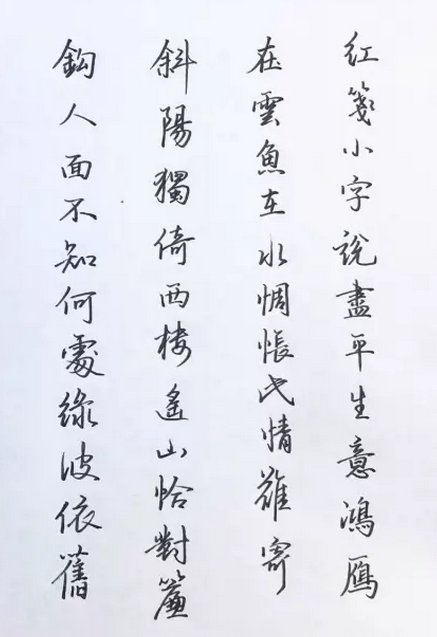 红笺小字說盡平生意鴻鴈
在雲魚在水惆悵此情難寄
斜陽獨倚西楼遥山恰對簾
鈎人面不知何處綠波依舊